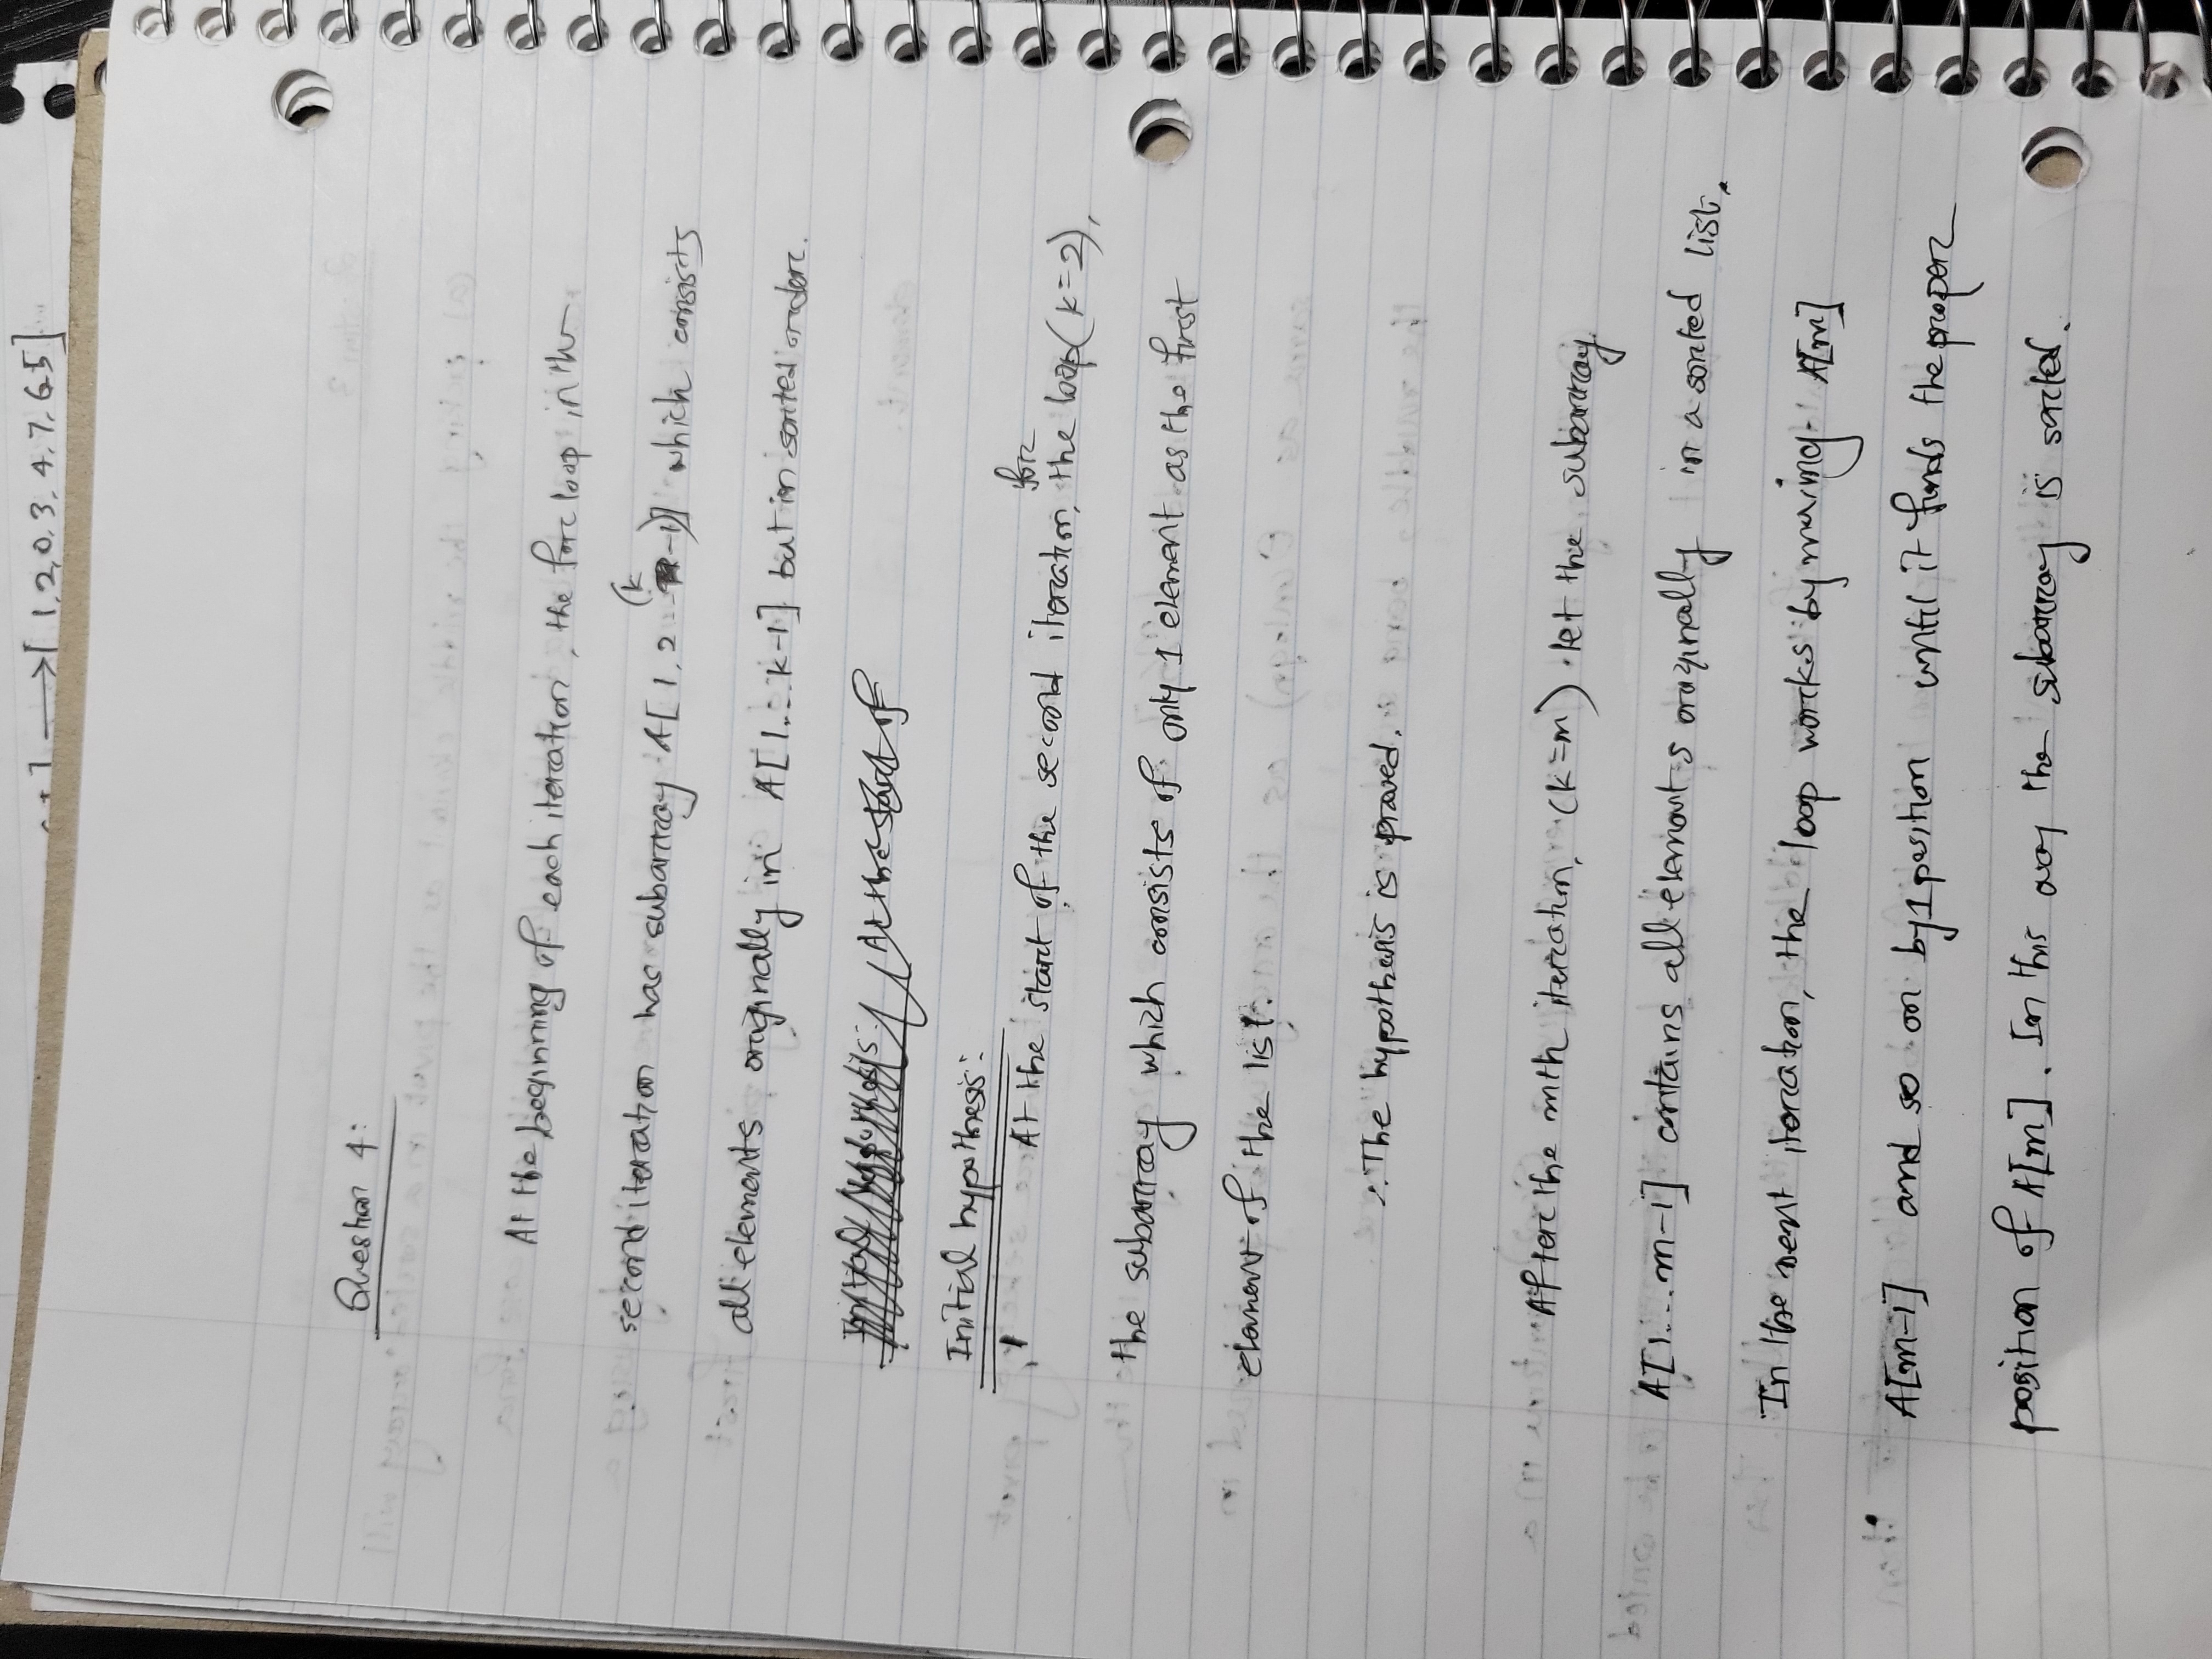 →[ 1,2,0,3,4,7,6,5]
Question 4:
At the beginning of each iteration, the for loop in the
second iteration has subarray A[1,2...(k-1)] which consists
all elements originally in A[1...k-1] but in sorted order.
Initial hypothesis: At the start of
Initial hypothesis:
At the start of the second iteration, for the loop(k=2),
the subarray which consists of only 1 element as the first
element of the list.
∴The hypothesis is proved.
After the mth iteration, (k=m) let the subarray
A[1...m-1] contains all elements originally in a sorted list.
In the next iteration, the loop works by moving A[m]
A[m-1] and so on by 1 position until it finds the proper
position of A[m]. In this way the subarray is sorted.